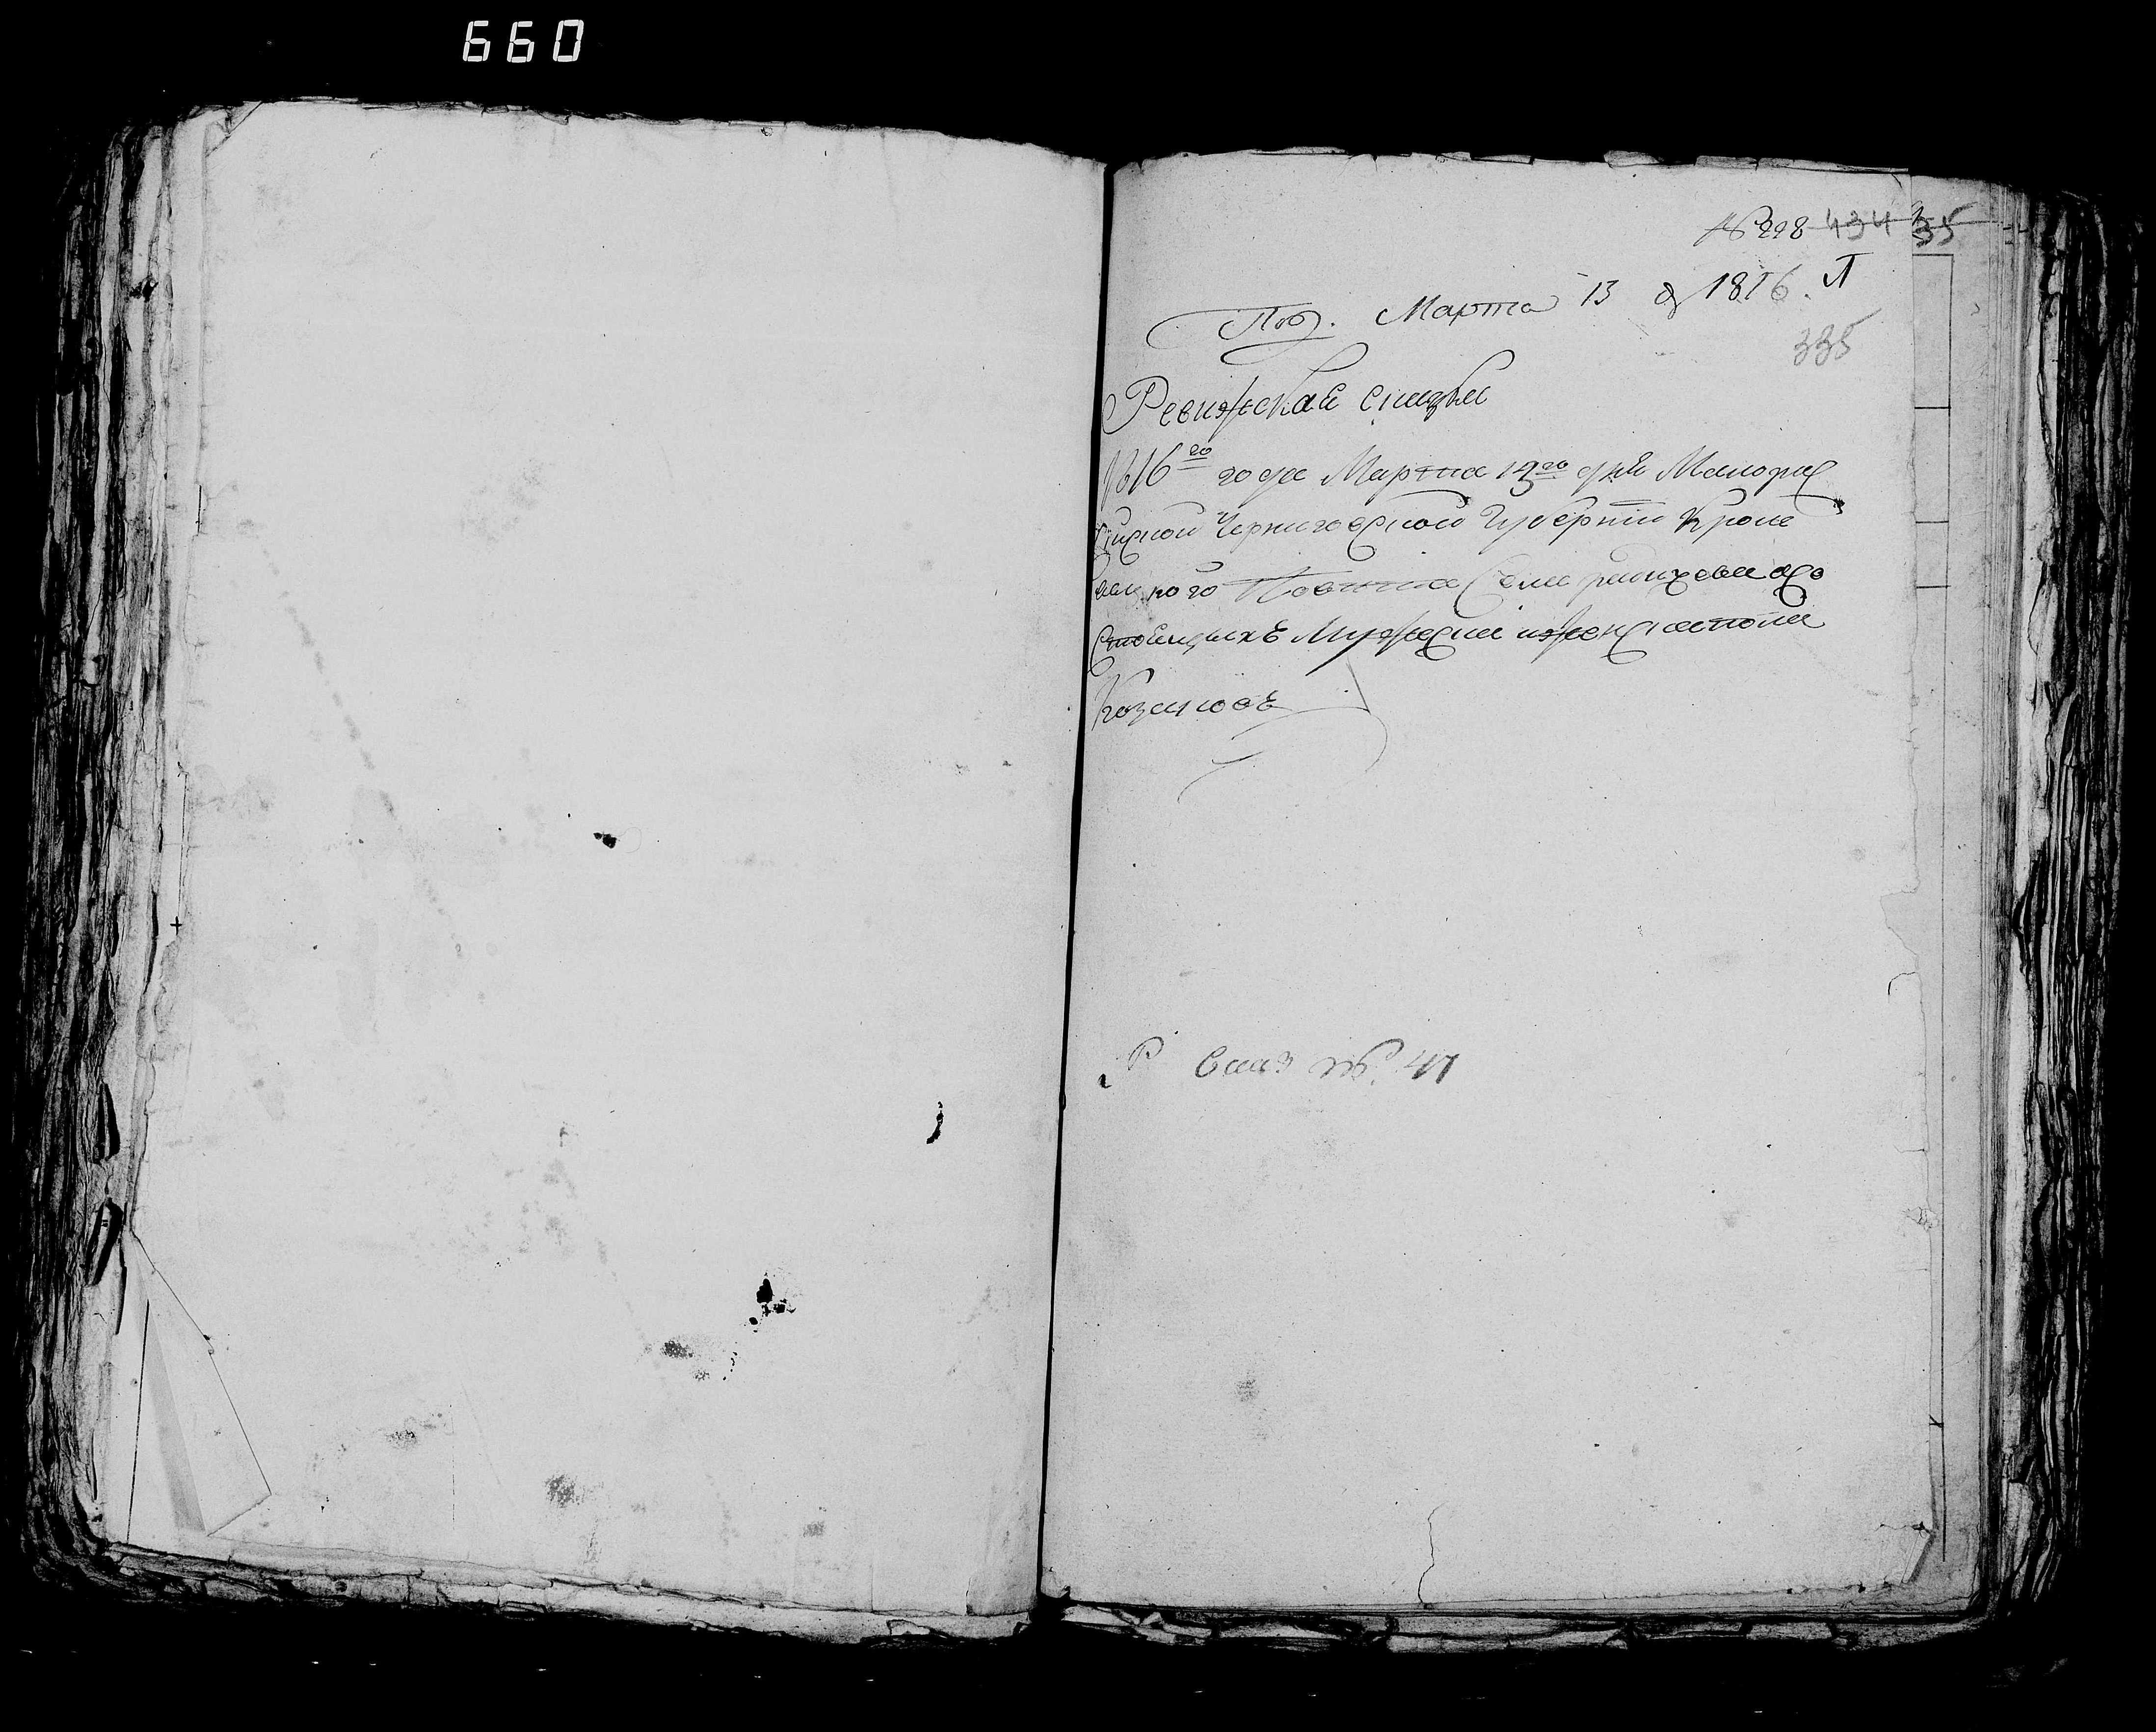 660
№ 298 434 335
Пол. Марта 13 д 1816. Л
335
Ревизская сказка
1816го года Марта 13го дня Малорос
сійской Черниговской Губерніи Кроле
вецкого Повета Села
стоящихъ Мужеска и женска пола
Козаковъ
Р Сказ №. 41